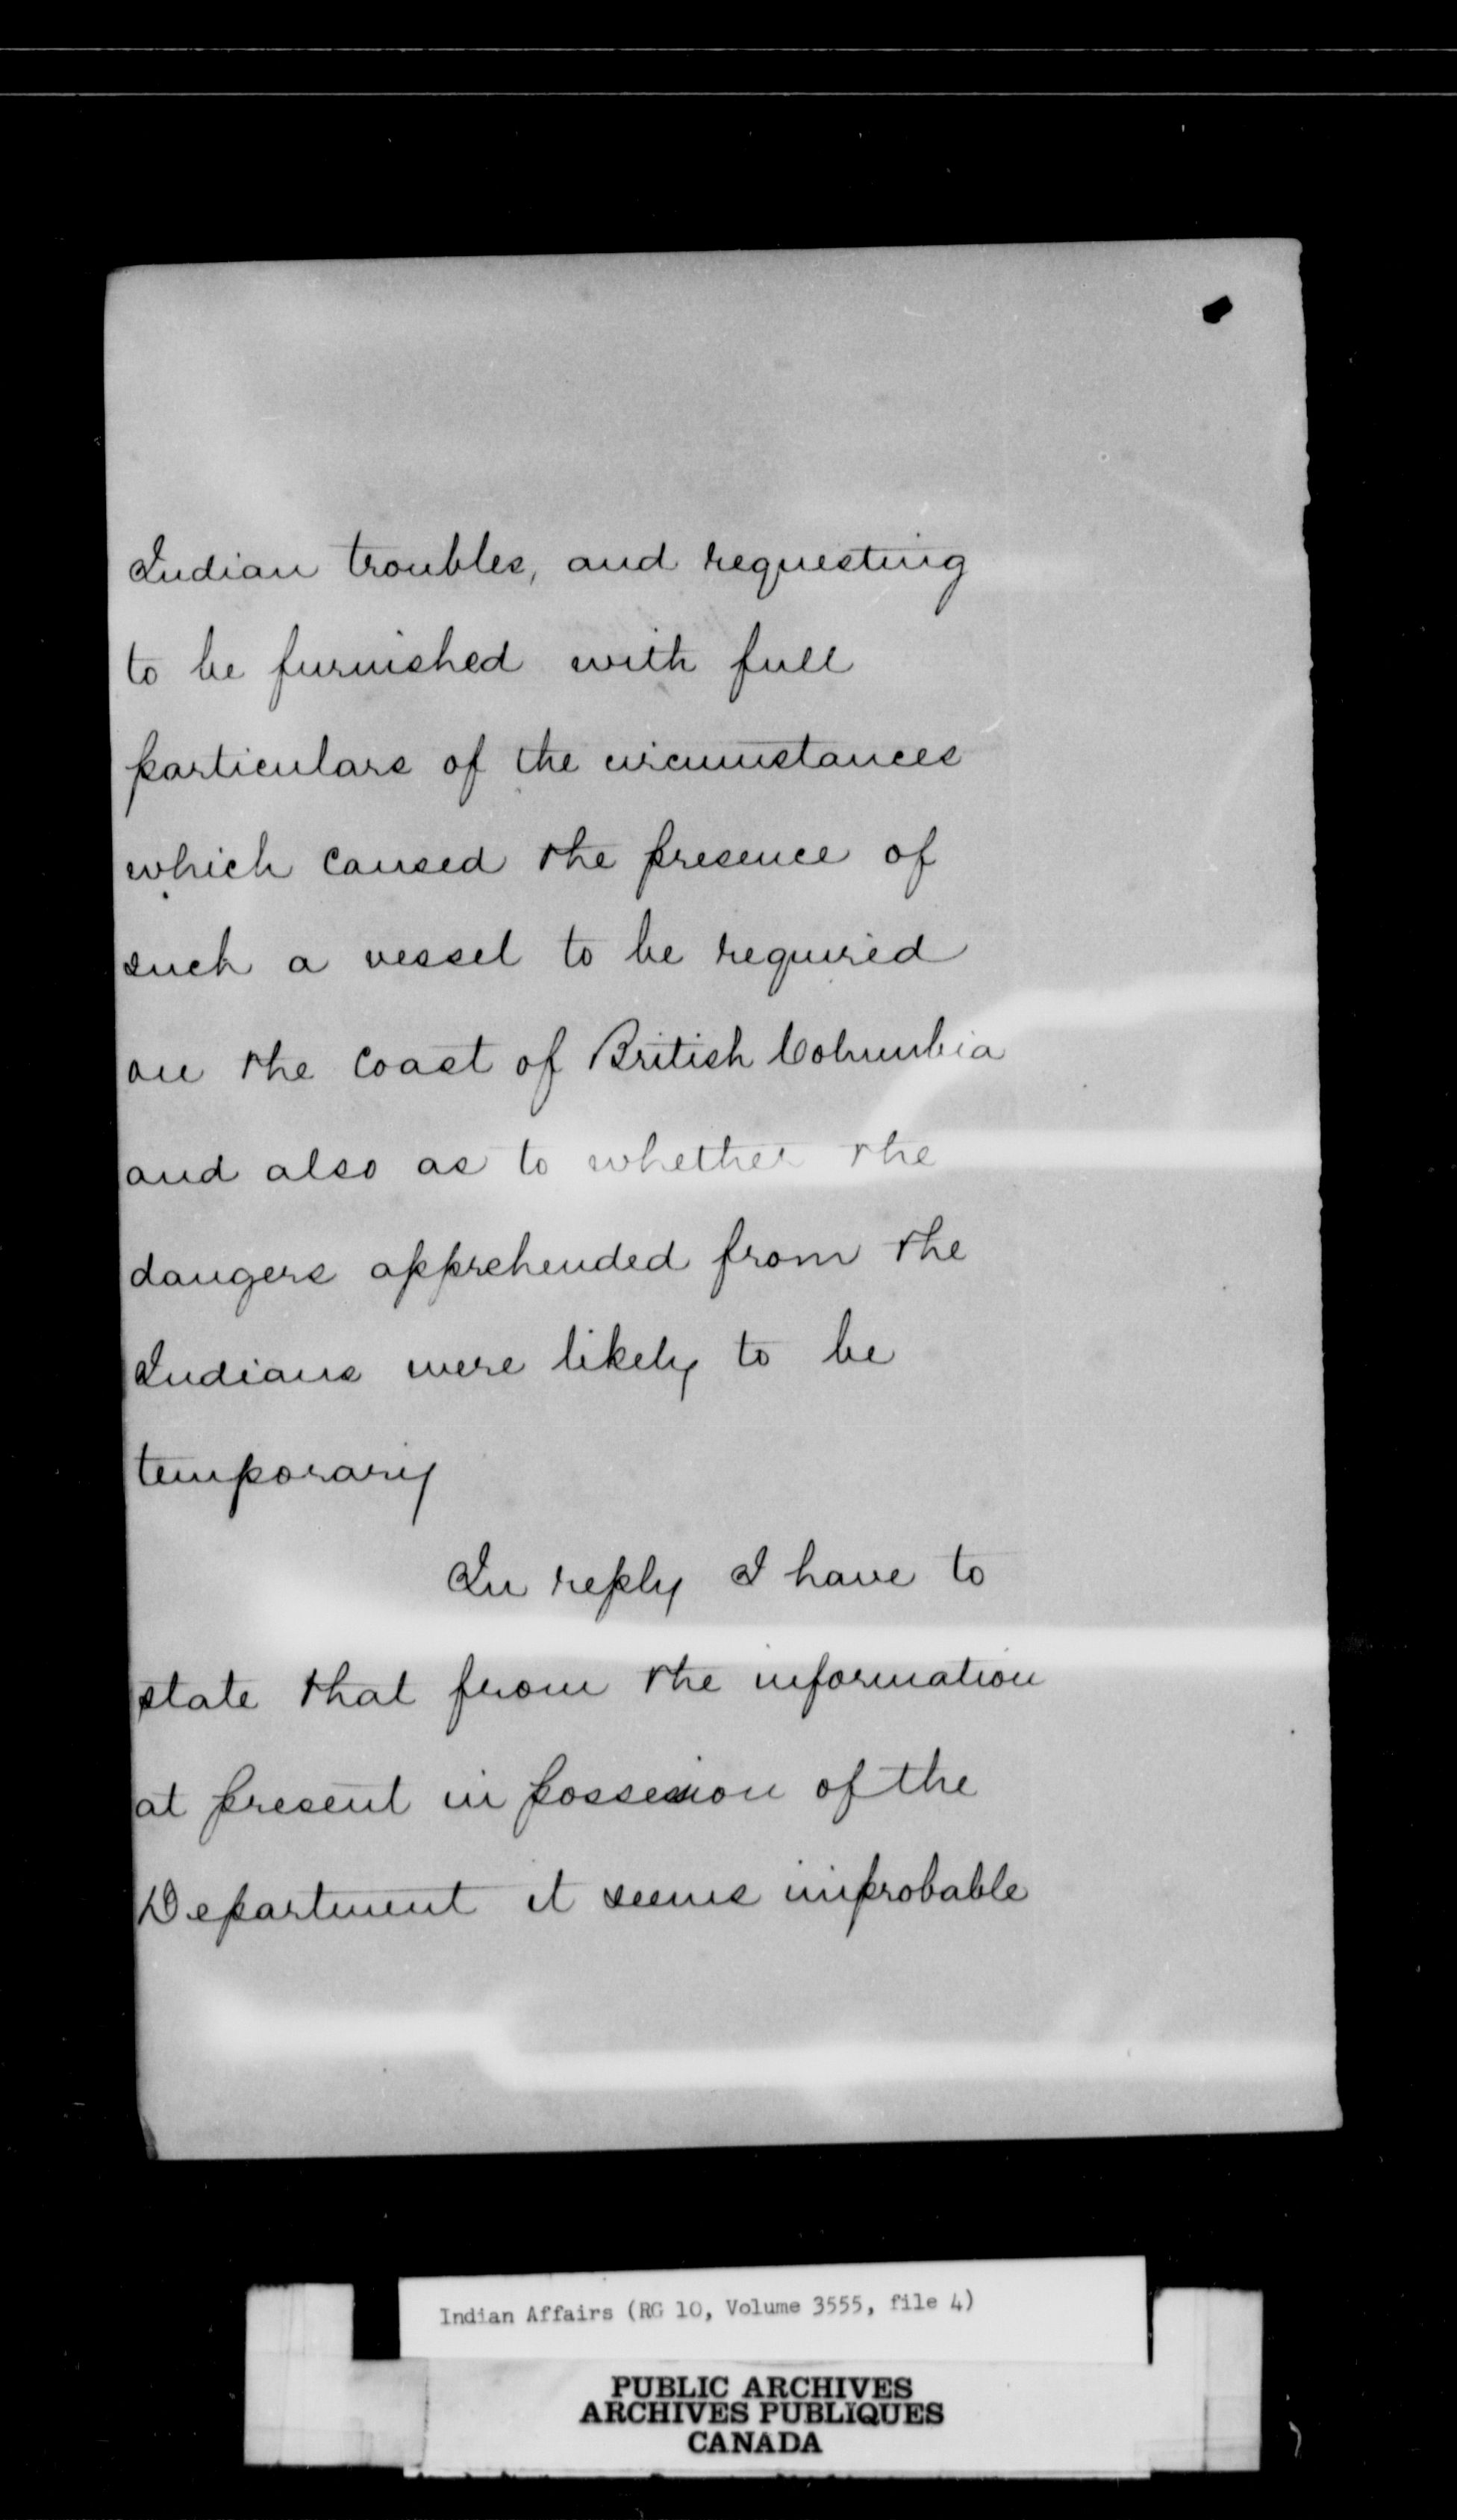 Indian troubles, and requesting
to be furnished with full
particulars of the circumstances
which caused the presence of
such a vessel to be required
on the Coast of British Columbia
and also as to whether the
dangers apprehended from the
Indians were likely to be
temporary
In reply I have to
state that from the information
at present in possession of the
Department it seems improbable
Indian Affairs (RG 10, Volume 3555, file 4)
PUBLIC ARCHIVES
ARCHIVES PUBLIQUES
CANADA